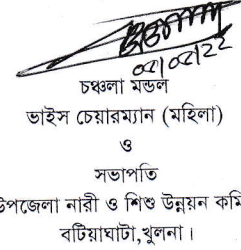 ০৫/০৫/২২
চঞ্চলা মন্ডল
ভাইস চেয়ারম্যান (মহিলা)
ও
সভাপতি
উপজেলা নারী ও শিশু উন্নয়ন কমি
বটিয়াঘাটা,খুলনা।